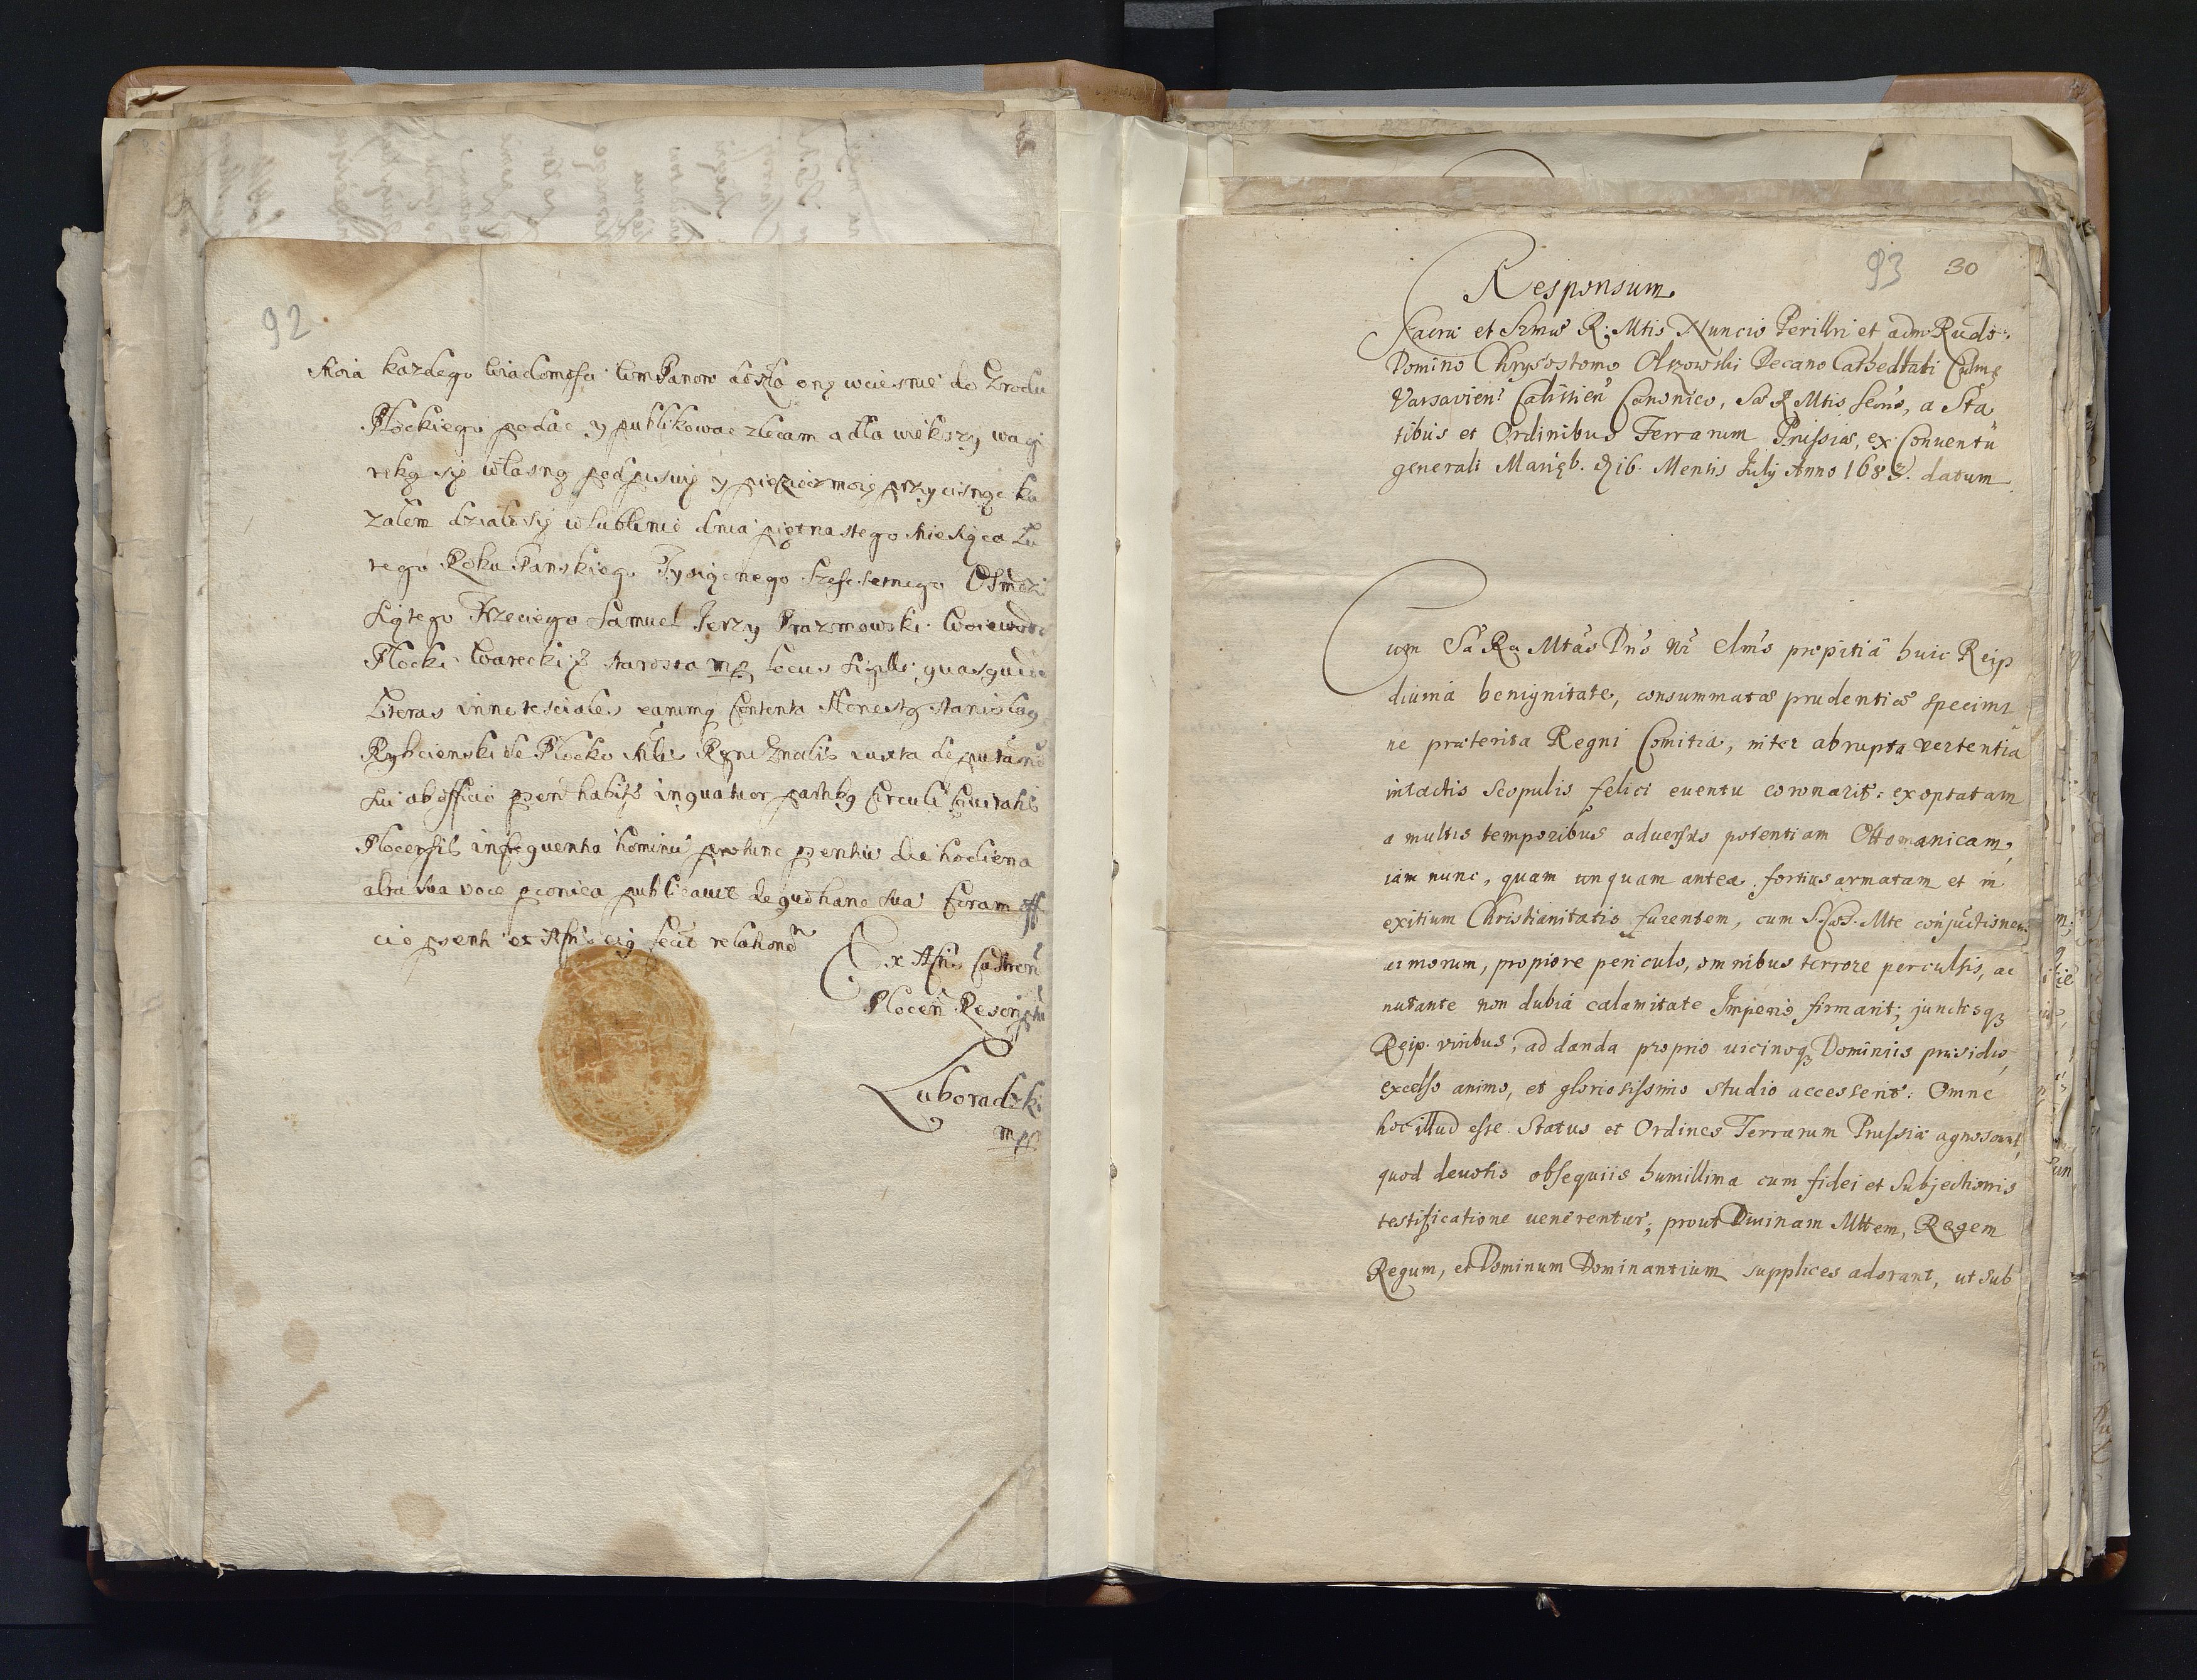 92
Moia kazdego wiadomosci Wm Panow doszła onę wcżesnie do Grodu
Płockiego podac y publikowac zlecam a dla większy wagi
ręką się własną podpisuię y pieczęc moię przycisnąc ka
załem działo się w Lublinie dnia piętnastego Miesiąca Lu
tego Roku Panskiego Tysiącnego Szescsetnego Osmdzi
siątego Trzeciego Samuel Jerzy Prazmowski Woiewoda
Płocki Warecki Starosta mp Locus Sigilli quasquide
Literas innotesciales earumq Contenta Honestq Stanislaq
Rybicienski de Plocko Mtlis Regni Gnalis iuxta deputa
sui ab officio pnti habitq in quatuor partibq Circuli Civitatis
Plocensis in frequentia hominu protunc pntiu die hodierna
alta sua voce pconica publicavit de quo hanc sua Coram off
cio pnti et Actis eiq fecit relatione
Ex Actis Castren
Plocen Rescriptu
Luboradzki
mp
93 30
Responsum
Sacrae et Srmae R. Mtis Nuncio Perillri et adm Rndo.
Domino Chrysostomo Olszowski Decano Cathedrali Culmę
Varsavien Calissien Canonico, Sae R Mtis Secrio, a Sta
tibus et Ordinibus Terrarum Prussiae, ex Conventu
generali Marięb. d 16. Mensis July Anno 1683. datum
Cum Sa Ra Mtas Dns Nr Clms propitiâ huic Reip
divinâ benignitate, consummatae prudentiae specimi
ne praeterita Regni Comitia, inter abrupta vertentia
intactis scopulis felici eventu coronarit: exoptatam
a multis temporibus adversus potentiam Ottomanicam,
iam nunc, quam unquam antea, fortius armatam et in
exitium Christianitatis furentem, cum S. Caes. Mte conjuctionem
armorum, propiore periculo, omnibus terrore perculsis, ac
nutante non dubiâ calamitate Imperio firmarit; junctisq3
Reip. viribus, ad danda proprio vicinoq3 Dominiis praesidio,
excelso animo, et gloriosissimo studio accesserit: Omne
hoc illud esse Status et Ordines Terrarum Prussiae agnoscunt,
quod devotis obsequiis humillima cum fidei et Subjectionis
testificatione venerentur; prout Divinam Mttem, Regem
Regum, et Dominum Dominantium supplices adorant, ut sub